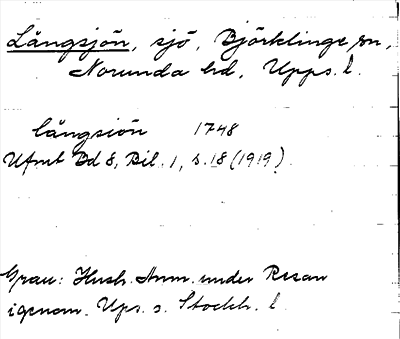 Långsjön, sjö, Björklinge sn,
Norunda hd, Upps. l.
långsiön 1748
Ufmt Bd 8, Bil. 1, s. 18 (1919).
Grau: Hush. Anm. under Resan
igenom. Ups. o. Stockh. l.